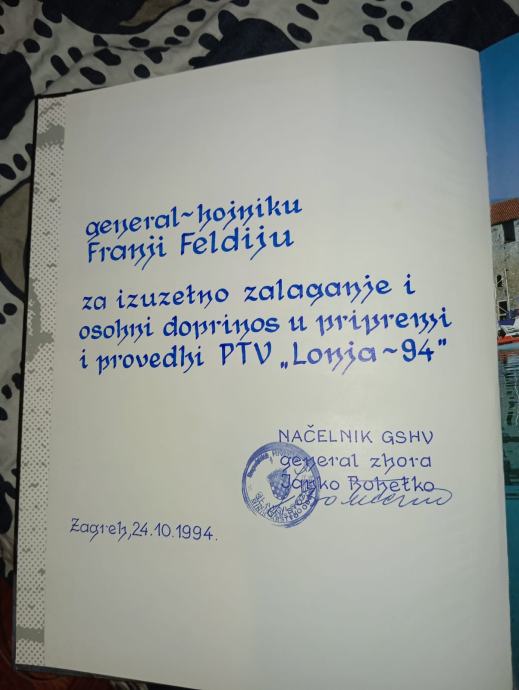 general-bojniku
Franji Feldiju
za izuzetno zalaganje i
osobni doprinos u pripremi
i provedbi PTV „Lonja~94"
NAČELNIK GSHV
general zbora
Janko Bobetko
Zagreb, 24.10.1994.